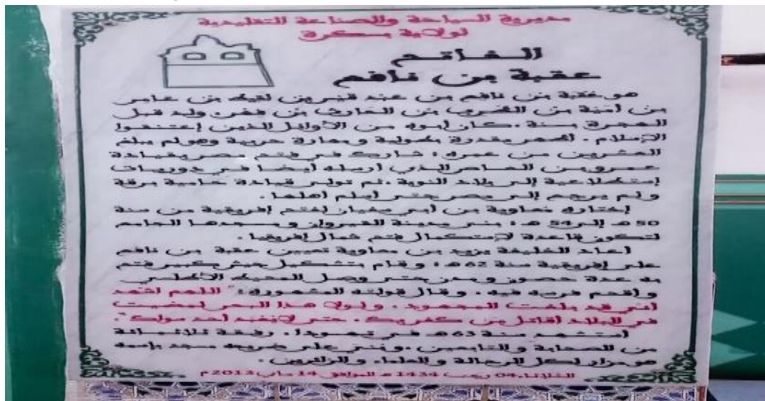 مديرية السياحة والصناعة التقليدية
لولاية بسكرة
الفاتح
عقبة بن نافع
هو عقبة بن نافع بن عبد قيس بن لقيط بن عامر
بن أمية بن الضرب بن الحارث بن فهر، ولد قبل
الهجرة بسنة، كان أبوه من الأوائل الذين إعتنقوا
الإسلام. اشتهر بقدرة بطولية ومهارة حربية وهو لم يبلغ
العشرين من عمره، شارك في فتح مصر بقيادة
عمرو بن العاص الذي أرسله أيضا في دوريات
إستطلاعية إلى بلاد النوبة، ثم تولى قيادة حامية برقة
ولم يرجع إلى مصر حتى أيام أهلها.
إختاره معاوية بن أبي سفيان لفتح إفريقية من سنة
50 هـ إلى 54 هـ، بنى مدينة القيروان و مسجدها الجامع
لتكون قاعدة لإستكمال فتح شمال إفريقيا.
أعاد الخليفة يزيد بن معاوية تعيين عقبة بن نافع
على إفريقية سنة 62 هـ، وقام بتشكيل جيش كبير فتح
به عدة حصون ومدن حتى وصل المحيط الأطلسي
وأقحم فرسه فيه، وقال قولته المشهورة: "اللهم اشهد
أني قد بلغت المجهود، ولولا هذا البحر لمضيت
في البلاد أقاتل من كفر بك، حتى لا يعبد أحد سواك".
أستشهد سنة 63 هـ في تهودة، رفقة ثلاثمائة
من الصحابة و التابعين، وبني على ضريحه مسجد بإسمه
هو مزار لكل الرحالة و العلماء و الزائرين.
الثلاثاء 04 رجب 1434 هـ الموافق 14 ماي 2013 م